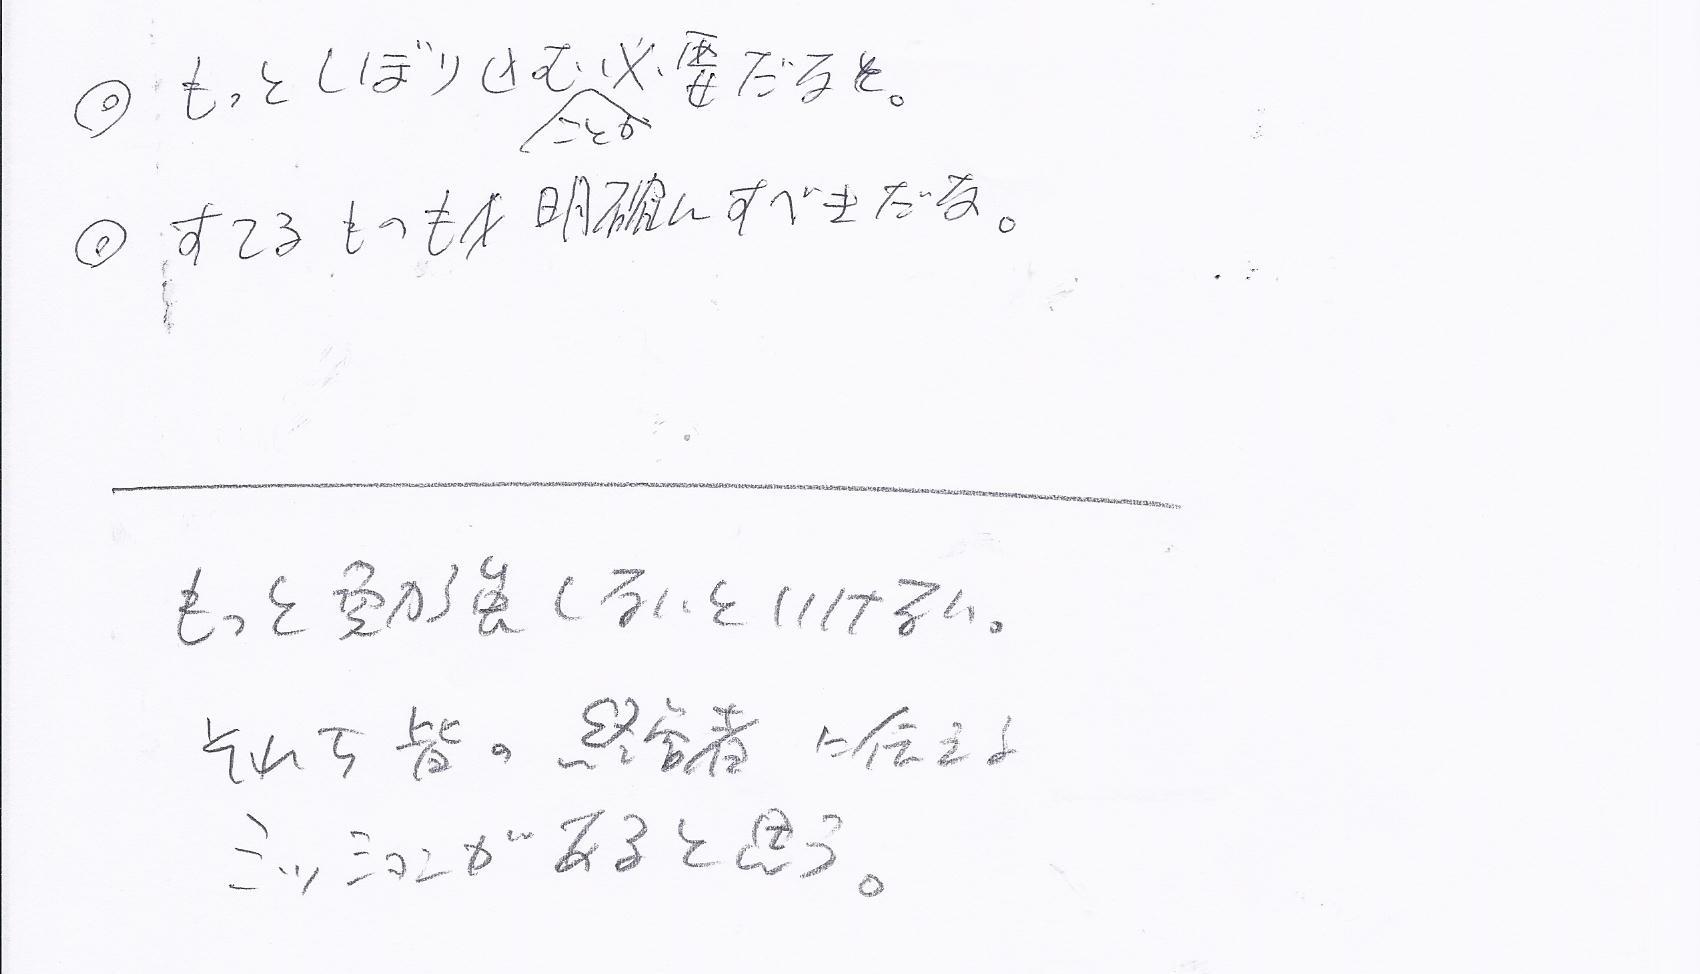 ◎ もっとしぼりこむことが必要だなと。
◎ すてるものも明確にすべきだな。
もっと勉強しないといけない。
それを皆の経営者に伝える
ミッションがあると思う。